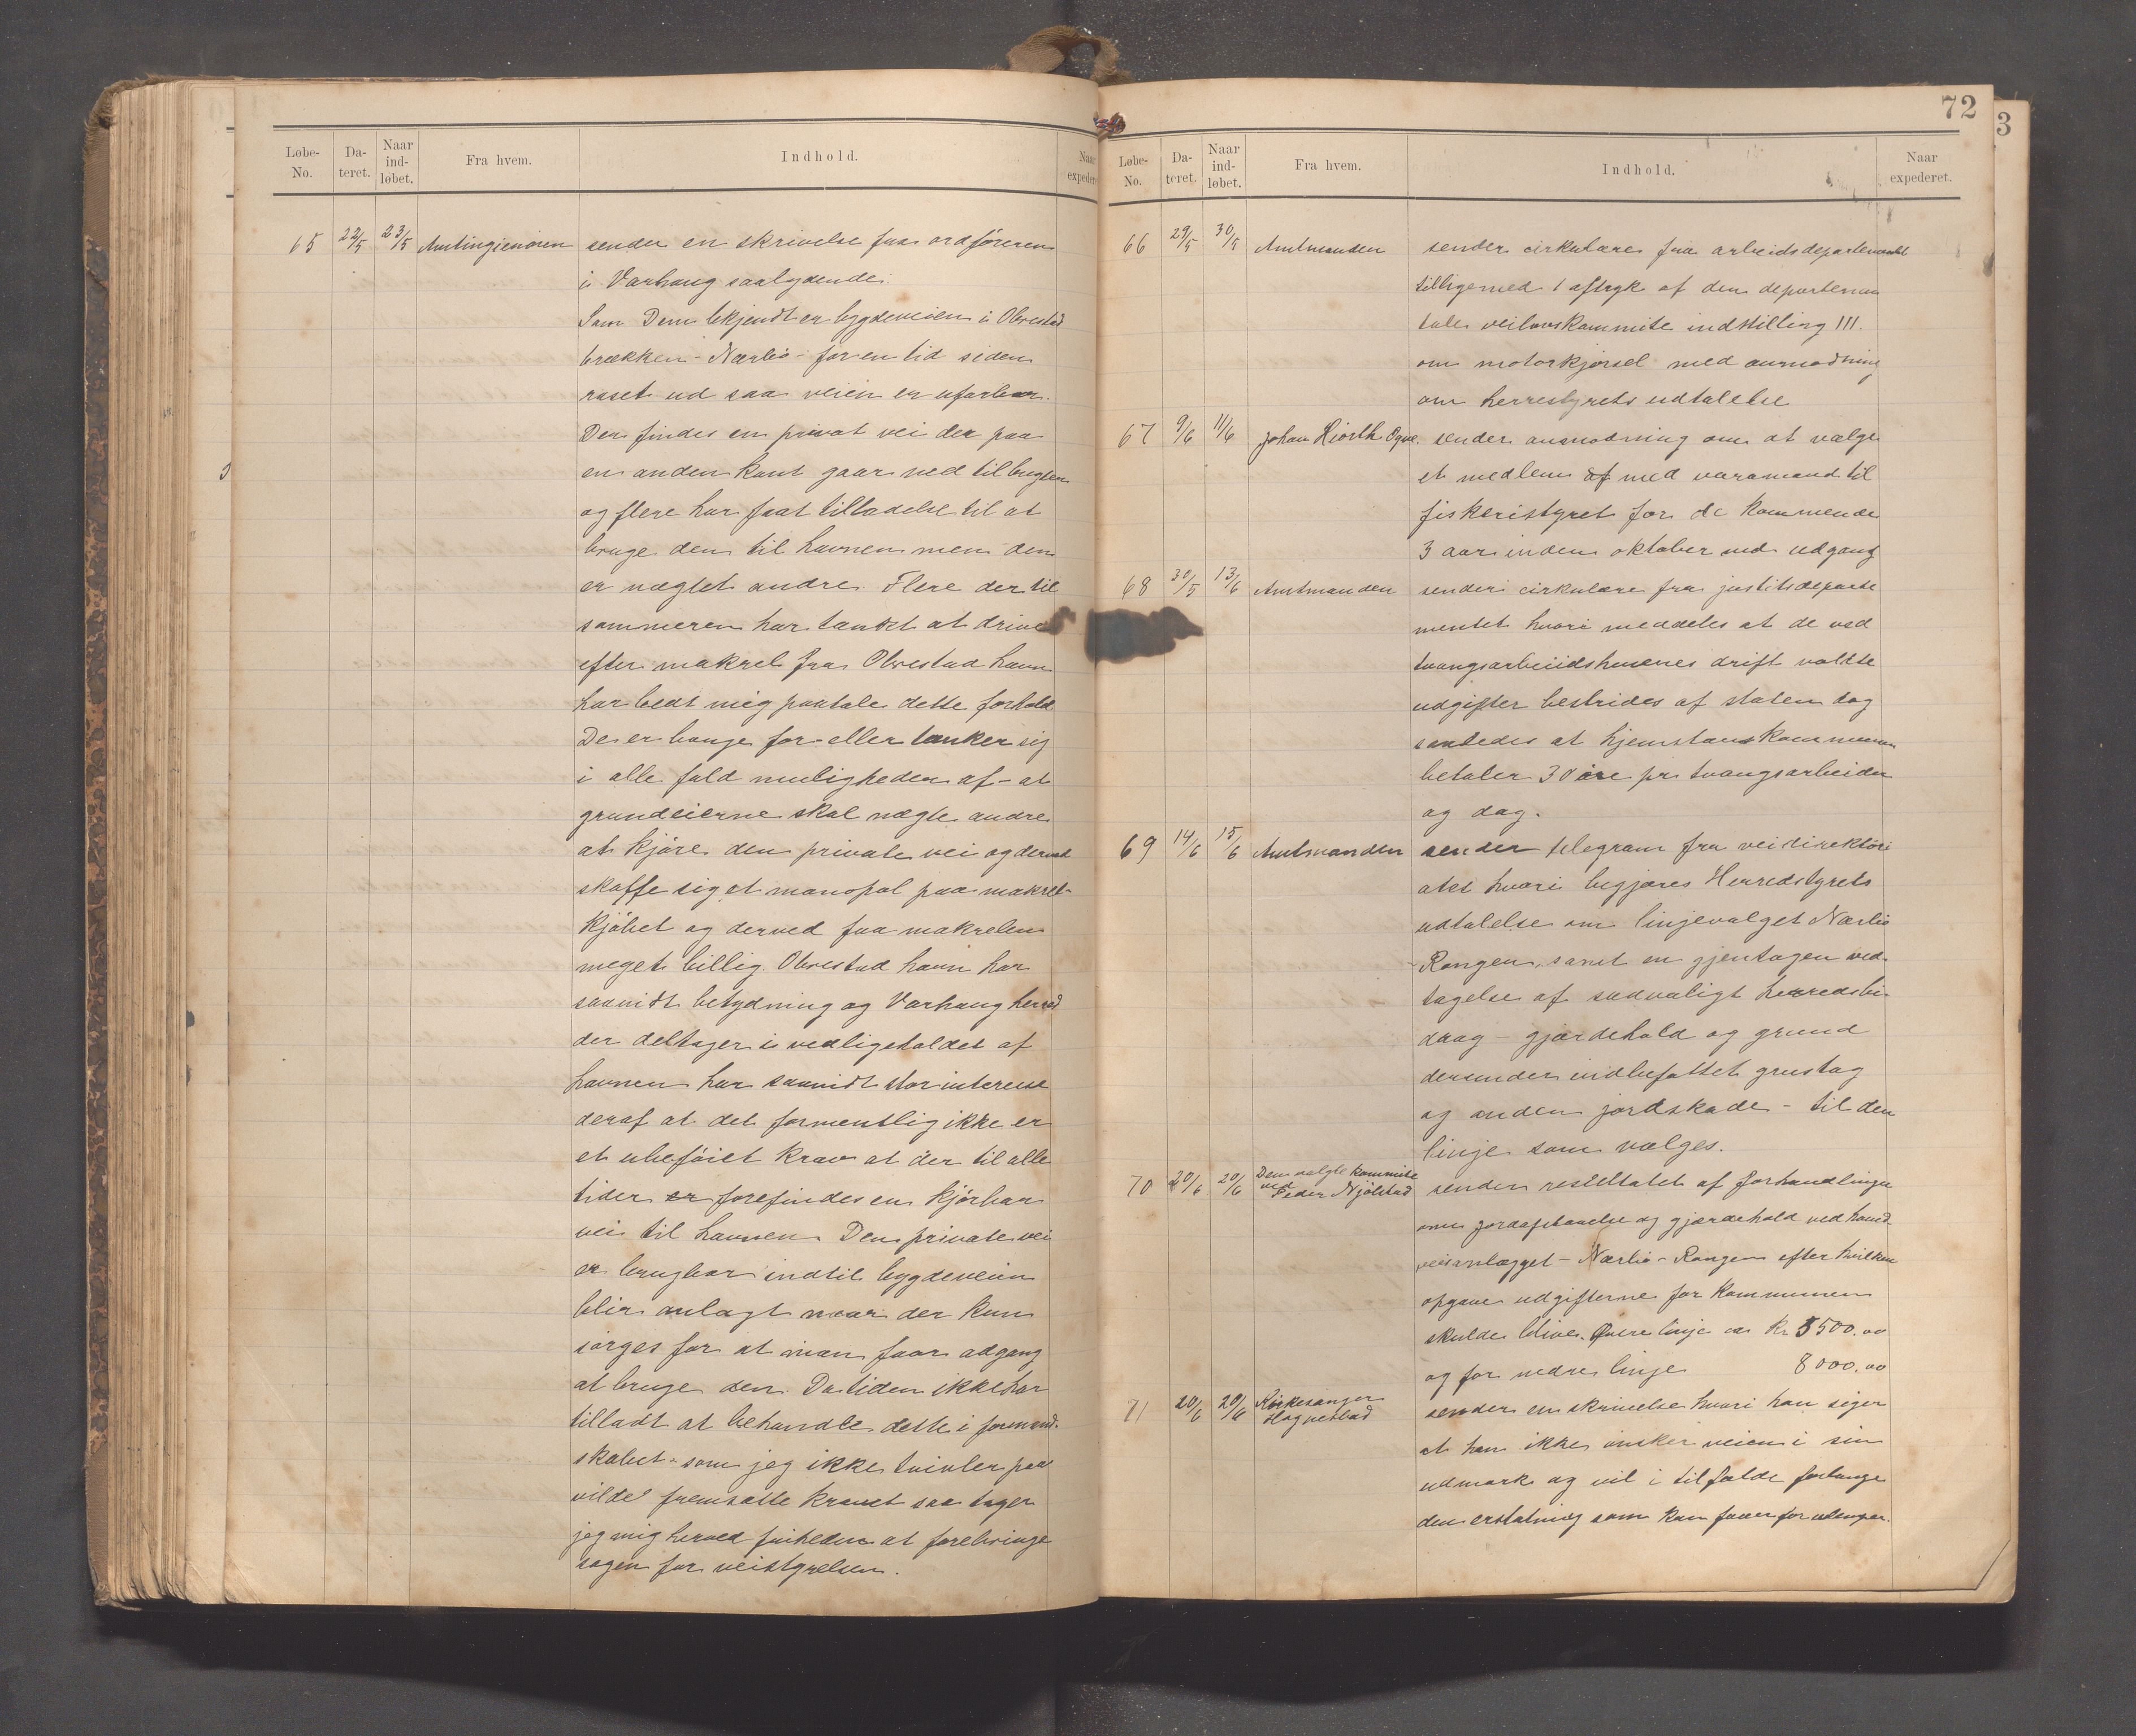 Løbe-
No.
Da-
teret.
Naar
ind-
løbet.
Fra hvem.
Indhold.
Naar
expederet
65 22/5 23/5 Amtingieniøren sender en skrivelse fra ordføreren
i Varhaug saalydende:
Som Dem bekjendt er bygdeveien i Obrestad
brækken - Nærbø - for en tid siden
raset ud saa veien er ufarbar.
Der findes en privat vei der paa
en anden kant gaar ned til bugten
og flere har faat tilladelse til at
bruge den til havnen men den
er nægtet andre. Flere der til
sommeren har tænkt at drive
efter makrel fra Obrestad havn
har bedt mig paatale dette forhold
De er bange for - eller tænker sig
i alle fald muligheden af - at
grundeierne skal nægte andre
at kjøre den private vei og derved
skaffe sig et monopol paa makrel-
kjøbet og derved faa makrelen
meget billig. Obrestad havn har
saavidt betydning og Varhaug herred
der deltager i vedligeholdet af
havnen har saavidt stor interesse
deraf at det formentlig ikke er
et ubeføiet krav at der til alle
tider er forefindes en kjørbar
vei til havnen. Den private vei
er brugbar indtil bygdeveien
blir anlagt naar der kun
sørges for at man faar adgang
at bruge den. Da tiden ikke har
tilladt at behandle dette i formand-
skabet - som jeg ikke tvivler paa
vilde fremsætte kravet saa tager
jeg mig herved friheden at forebringe
sagen for veistyrelsen.
72
3
Løbe-
No.
Da-
teret.
Naar
ind-
løbet.
Fra hvem.
Indhold.
Naar
expederet.
66 29/5 30/5 Amtmanden sender cirkulære fra arbeidsdepartementet
tilligemed 1 aftryk af den departemen
tale veilovskommite indstilling III.
om motorkjørsel med anmodning
om herrestyrets udtalelse
67 9/6 11/6 Johan Hiorth Ogne. sender anmodning om at vælge
et medlem af med varamand til
fiskeristyret for de kommende
3 aar inden oktober md. udgang
68 30/5 13/6 Amtmanden sender cirkulære fra justitsdeparte
mentet hvori meddeles at de ved
tvangsarbeiidshusenes drift voldte
udgifter bestrides af staten dog
saaledes at hjemstavskommunen
betaler 30 øre pr tvangsarbeider
og dag.
69 14/6 15/6 Amtmanden sender telegram fra veidirektøri
atet hvori begjæres Herredstyrets
udtalelse om linjevalget Nærbø
- Rongen, samt en gjentagen ved-
tagelse af sædvanligt herredsbi-
drag - gjærdehold og grund
derunder indbefattet grustag
og anden jordskade - til den
linje som vælges.
70 20/6 20/6 Den valgte kommite
ved
Peder Njølstad sender resultatet af forhandlinger
om jordafstaaelse og gjærdehold ved hoved
veianlægget - Nærbø - Rongen efter hvilken
opgave udgifterne for kommunen
skulde blive. Øvre linje ca Kr 5500.00
og for nedre linje 8000.00
71 20/6 20/6 Kirkesanger
Hognestad sender en skrivelse hvori han siger
at han ikke ønsker veien i sin
udmark og vil i tilfælde forlange
den erstatning som kan faaes for ulemper.